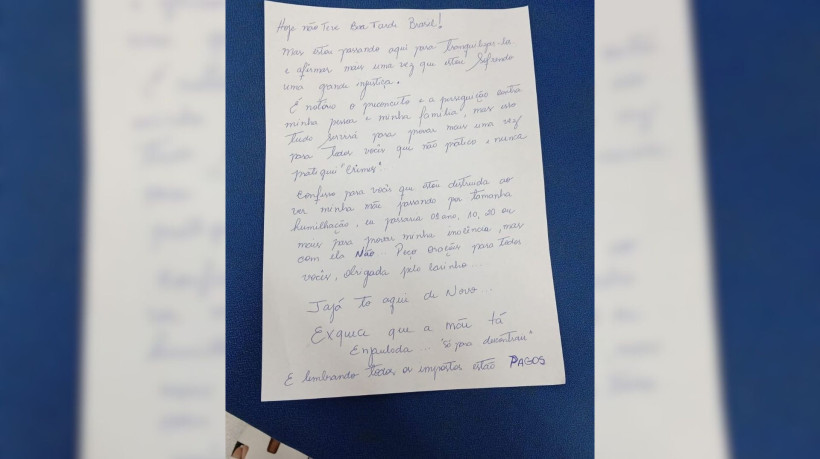 Hoje não Teve Boa Tarde Brasil!
Mas estou passando aqui para Tranquiliza-la
e afirmar mais uma vez que estou Sofrendo
uma grande injustiça.
É notório o preconceito e a perseguição contra
minha pessoa e minha família, mas isso
Tudo Servirá para provar mais uma vez
para Todos vocês que não pratico e nunca
pratiquei "Crimes"..
Confesso para vocês que estou destruída ao
ver minha mãe passando por tamanha
humilhação, eu passaria 01 ano, 10, 20 ou
mais para provar minha inocência, mas
com ela Não... Peço orações para todos
vocês, obrigada pelo carinho...
Jajá to aqui de Novo...
Exquece que a mãe tá
Enjaulada... "só para descontrair"
E lembrando Todos os impostos estão PAGOS